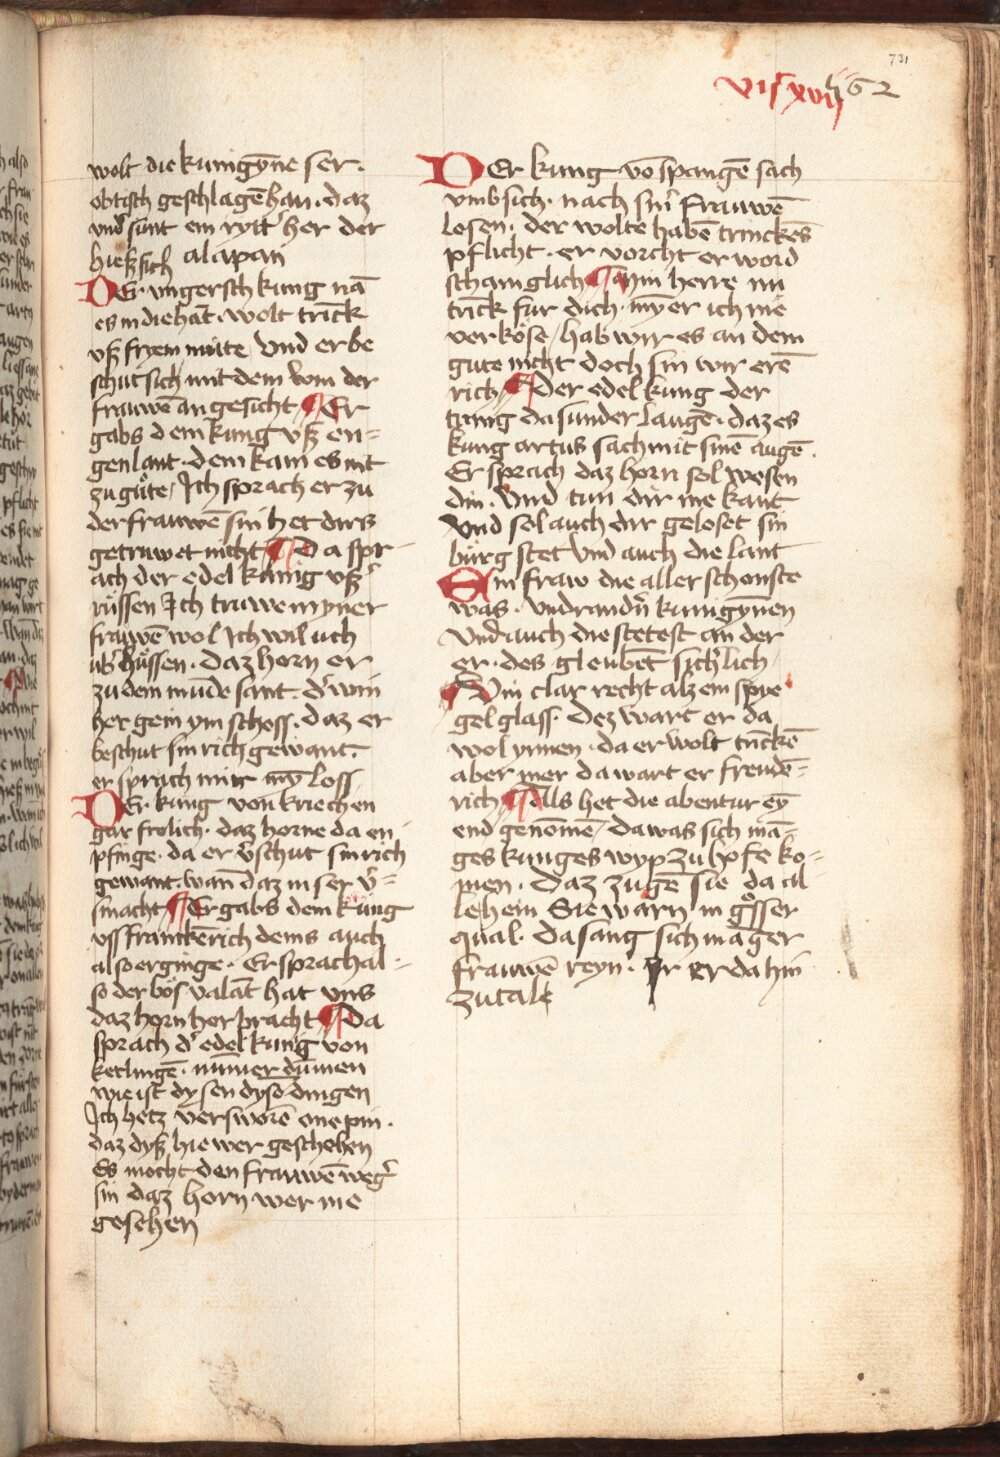 731
vijͨ xvij 762
wolt die kunigȳne ser ·
ob tisch geschlagē han · daz
vnd͛ sunt ein rytt͛ her der
hieß sich alapan
Der vngersch kung nā
es in die hāt · wolt trīck
vß fryem mūte / vnd er be
schut sich mit dem win der
frauwē an gesicht ¶ Er
gabs dem kung vß en=
genlant · dem kam es nit
zu gůte / Ich sprach er zu
der frauwē sin het dirs
getruwet nicht ¶ Da spr
ach der edel kunig vß
růssen Ich truwe myner
frauwē wol Ich wil uch
ub͛ hůssen · daz horn er
zu dem mūde sant · d͛ win
her gein ym schoss · daz er
beschut sin rich gewant ·
er sprach mir my loss
Der kung von kriechen
gar frolich · daz horne da en
pfinge · da er v͛schut sin rich
gewant · wān daz in ser v͛=
smacht ¶ Er gabs dem kung
uss franckērich dems auch
also erginge · Er sprach al=
so der bos valāt hat vns
daz horn her bracht ¶ Da
sprach d͛ edel kunig von
kerlingē · nūmer dūmen
wie ist dysen dyso dingen
Ich hetz versworē one pin ·
daz dyß hie wer geschehen
Es mocht den frauwē weg͛
sin daz horn wer nie
gesehen
Der kung vō spangē sach
vmb sich · nach sin͛ frauwē
losen · der wolte habē trinckēs
pflicht · er vorcht er word
scham glich ¶ Myn herre nu
trīck fur dich · my er ich nie
verkose / hab wir es an dem
gute nicht doch sin wir erē
rich ¶ Der edel kung der
trang da sunder laugē · daz es
kung artus sach mit sinē augē ·
Er sprach daz horn sol wesen
din · vnd tun dir nie kant
vnd sol auch dir geloset sin
burg stet vnd auch die lant
Sin fraw die aller schonste
was · vndr andn͛ kunigynen
vnd auch die stetest an der
er · des gleubēt sich͛lich
¶ Win clar recht alz ein spie
gel glass · dez wart er da
wol ynnen · da er wolt trickē
aber mer da wart er freudē=
rich ¶ Alls het die abentur ey
end genomē / da was sich mā=
ges kunges wyp zu hofe ko=
men · daz zugē sie da al=
le hein Sie warn in grosser
qual · da sang sich māger
frauwē reyn · Jr er da hin
zu tale